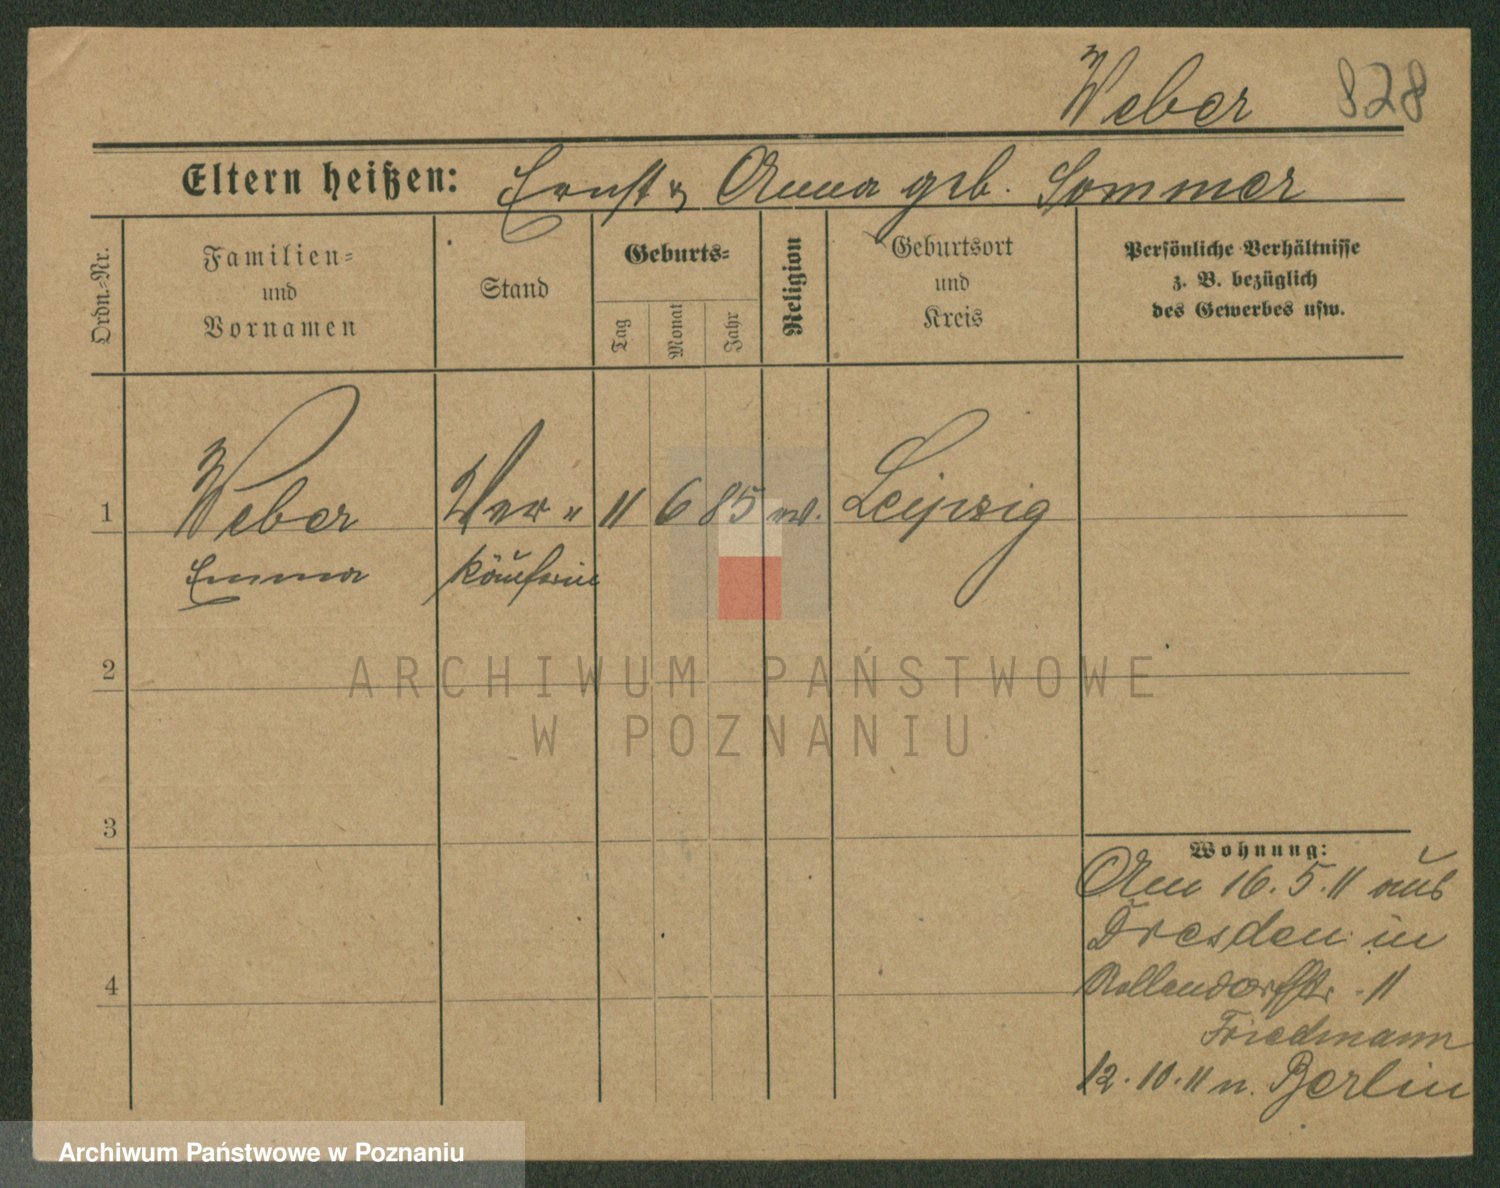 Weber 828
Eltern heißen: Ernst & Anna geb. Sommer
Ordn.-Nr.
Familien-
und
Vornamen
Stand
Geburts-
Tag
Monat
Jahr
Religion
Geburtsort
und
Kreis
Persönliche Verhältnisse
z. B. bezüglich
des Gewerbes usw.
1 Weber Ver- 11 6 85 Leipzig
Emma käuferin
2
3
4
Wohnung:
Am 16.5.11 aus
Dresden in
11
Friedmann
12.10.11 n. Berlin
ARCHIWUM PAŃSTWOWE
W POZNANIU
Archiwum Państwowe w Poznaniu